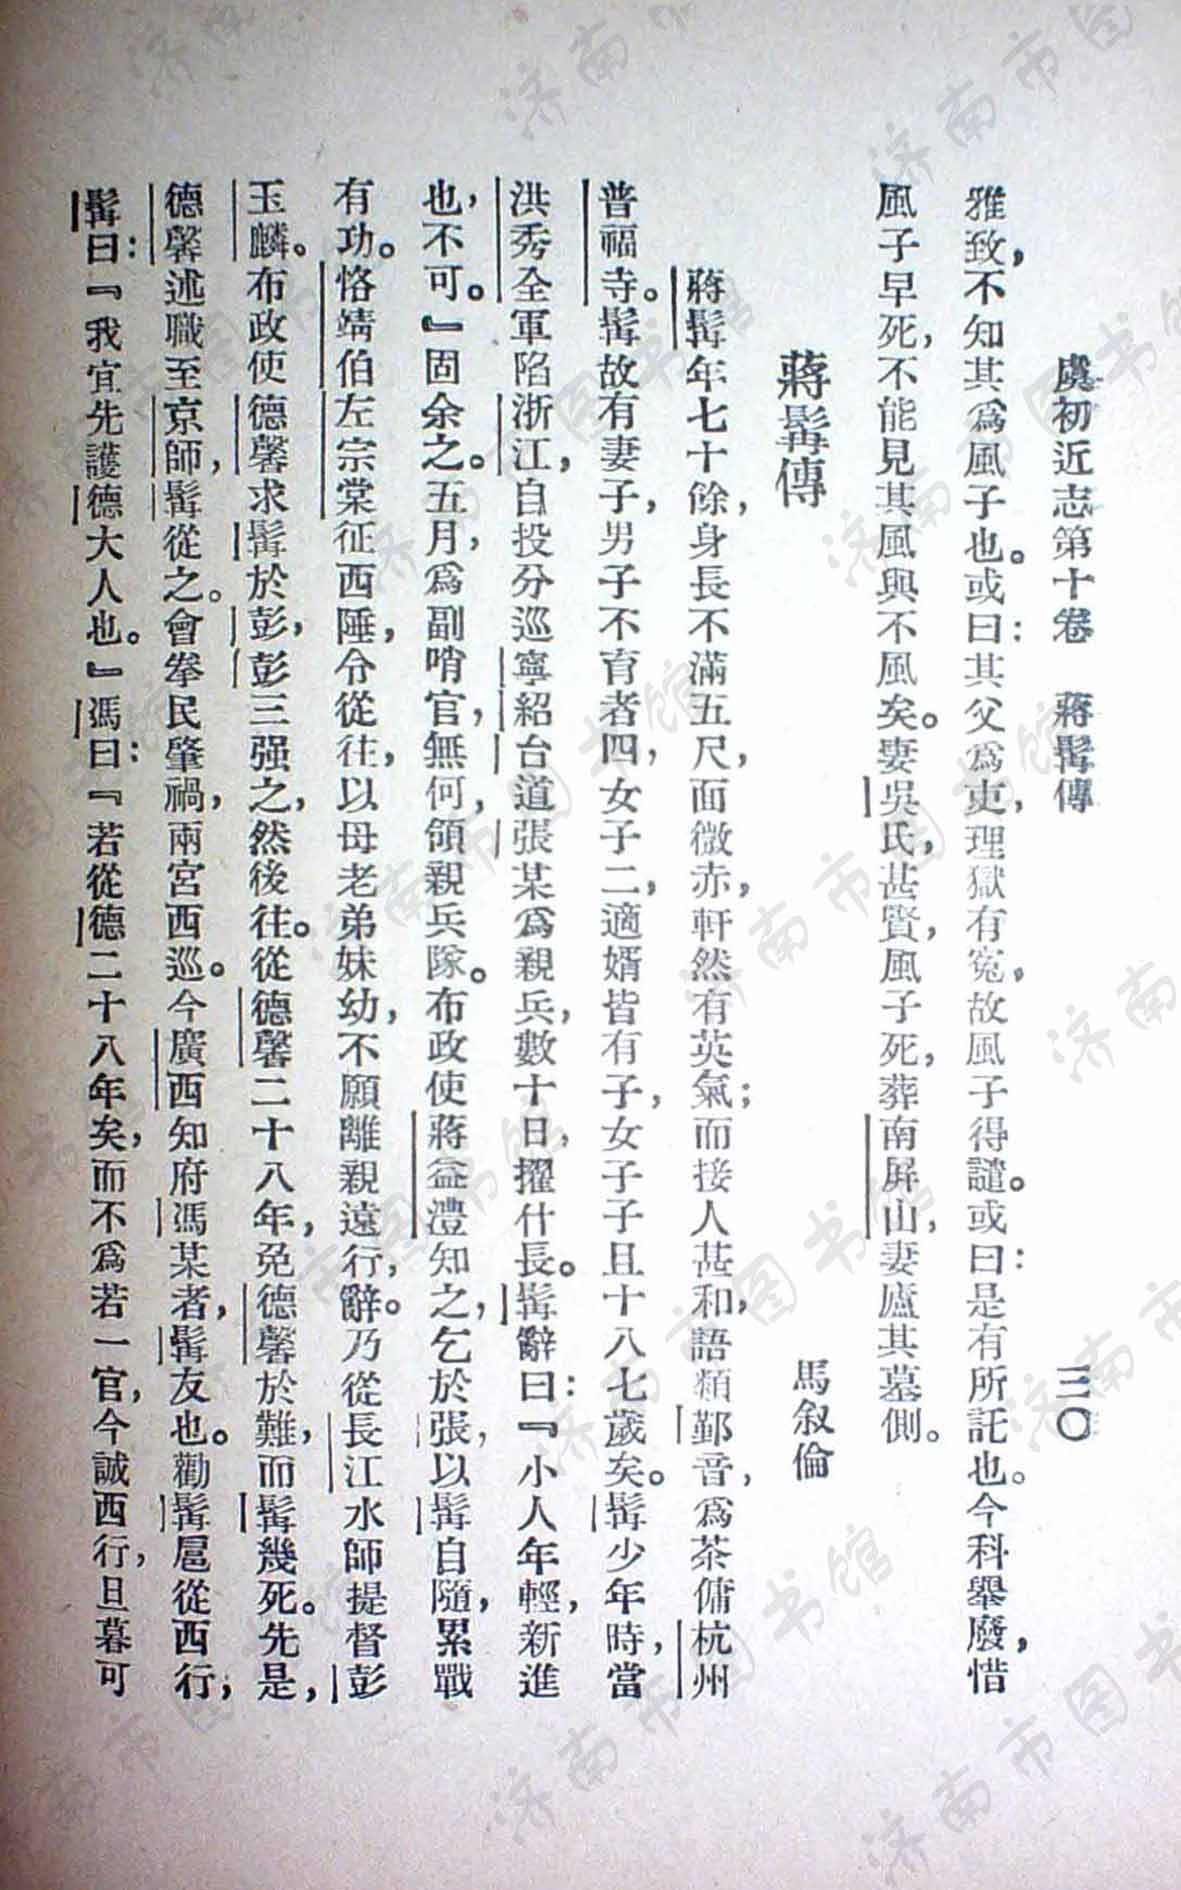 虞初近志第十卷　蔣髯傳　三〇
雅致，不知其爲風子也。或曰：其父爲吏，理獄有冤，故風子得譴。或曰：是有所託也。今科舉廢，惜
風子早死，不能見其風與不風矣。妻吳氏，甚賢，風子死，葬南屏山，妻廬其墓側。
蔣髯傳　馬叙倫
蔣髯年七十餘，身長不滿五尺，面微赤，軒然有英氣；而接人甚和，語類鄞音，爲茶傭杭州
普福寺。髯故有妻子，男子不育者四，女子二，適婿皆有子，女子子且十八七歲矣。髯少年時，當
洪秀全軍陷浙江，自投分巡寧紹台道張某爲親兵，數十日，擢什長。髯辭曰：『小人年輕，新進
也，不可。』固余之。五月，爲副哨官，無何，領親兵隊。布政使蔣益澧知之，乞於張，以髯自隨，累戰
有功。恪靖伯左宗棠征西陲，令從往，以母老弟妹幼，不願離親遠行，辭。乃從長江水師提督彭
玉麟。布政使德馨求髯於彭，彭三强之，然後往。從德馨二十八年，免德馨於難，而髯幾死。先是，
德馨述職至京師，髯從之。會拳民肇禍，兩宮西巡。今廣西知府馮某者，髯友也。勸髯扈從西行，
髯曰：『我宜先護德大人也。』馮曰：『若從德二十八年矣，而不爲若一官，今誠西行，旦暮可